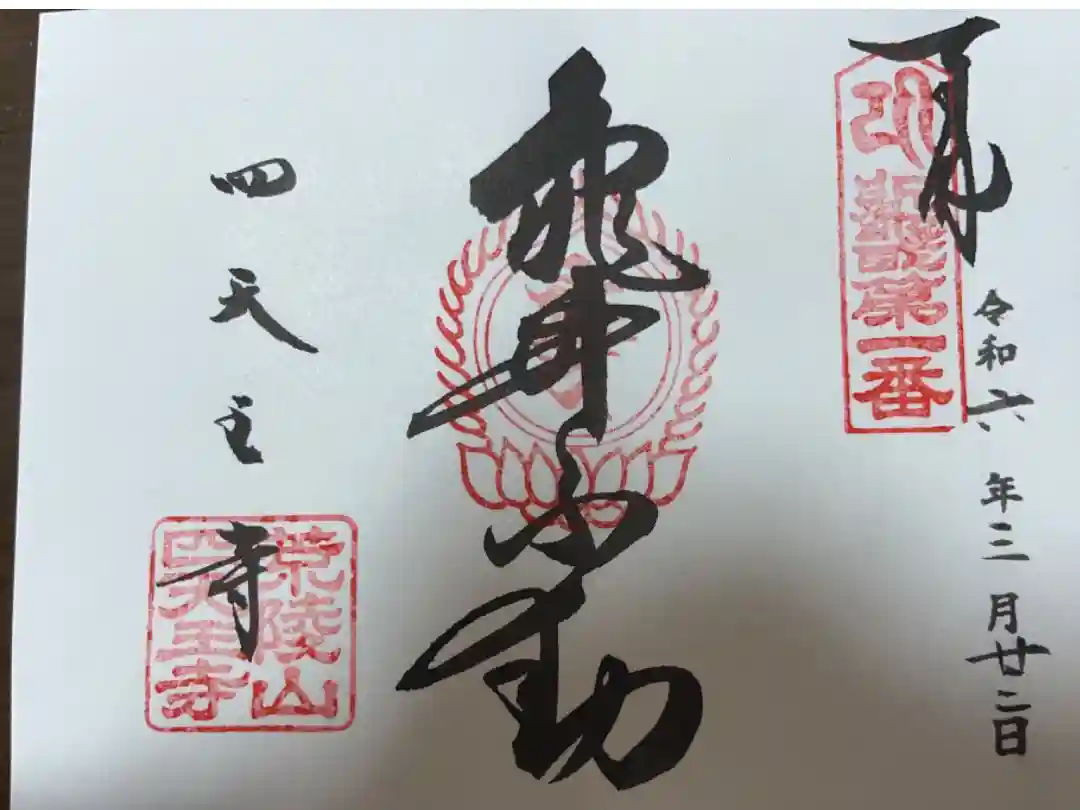 第一番
令和六年三月廿二日
亀井不動
四天王寺
荒陵山
四天王寺